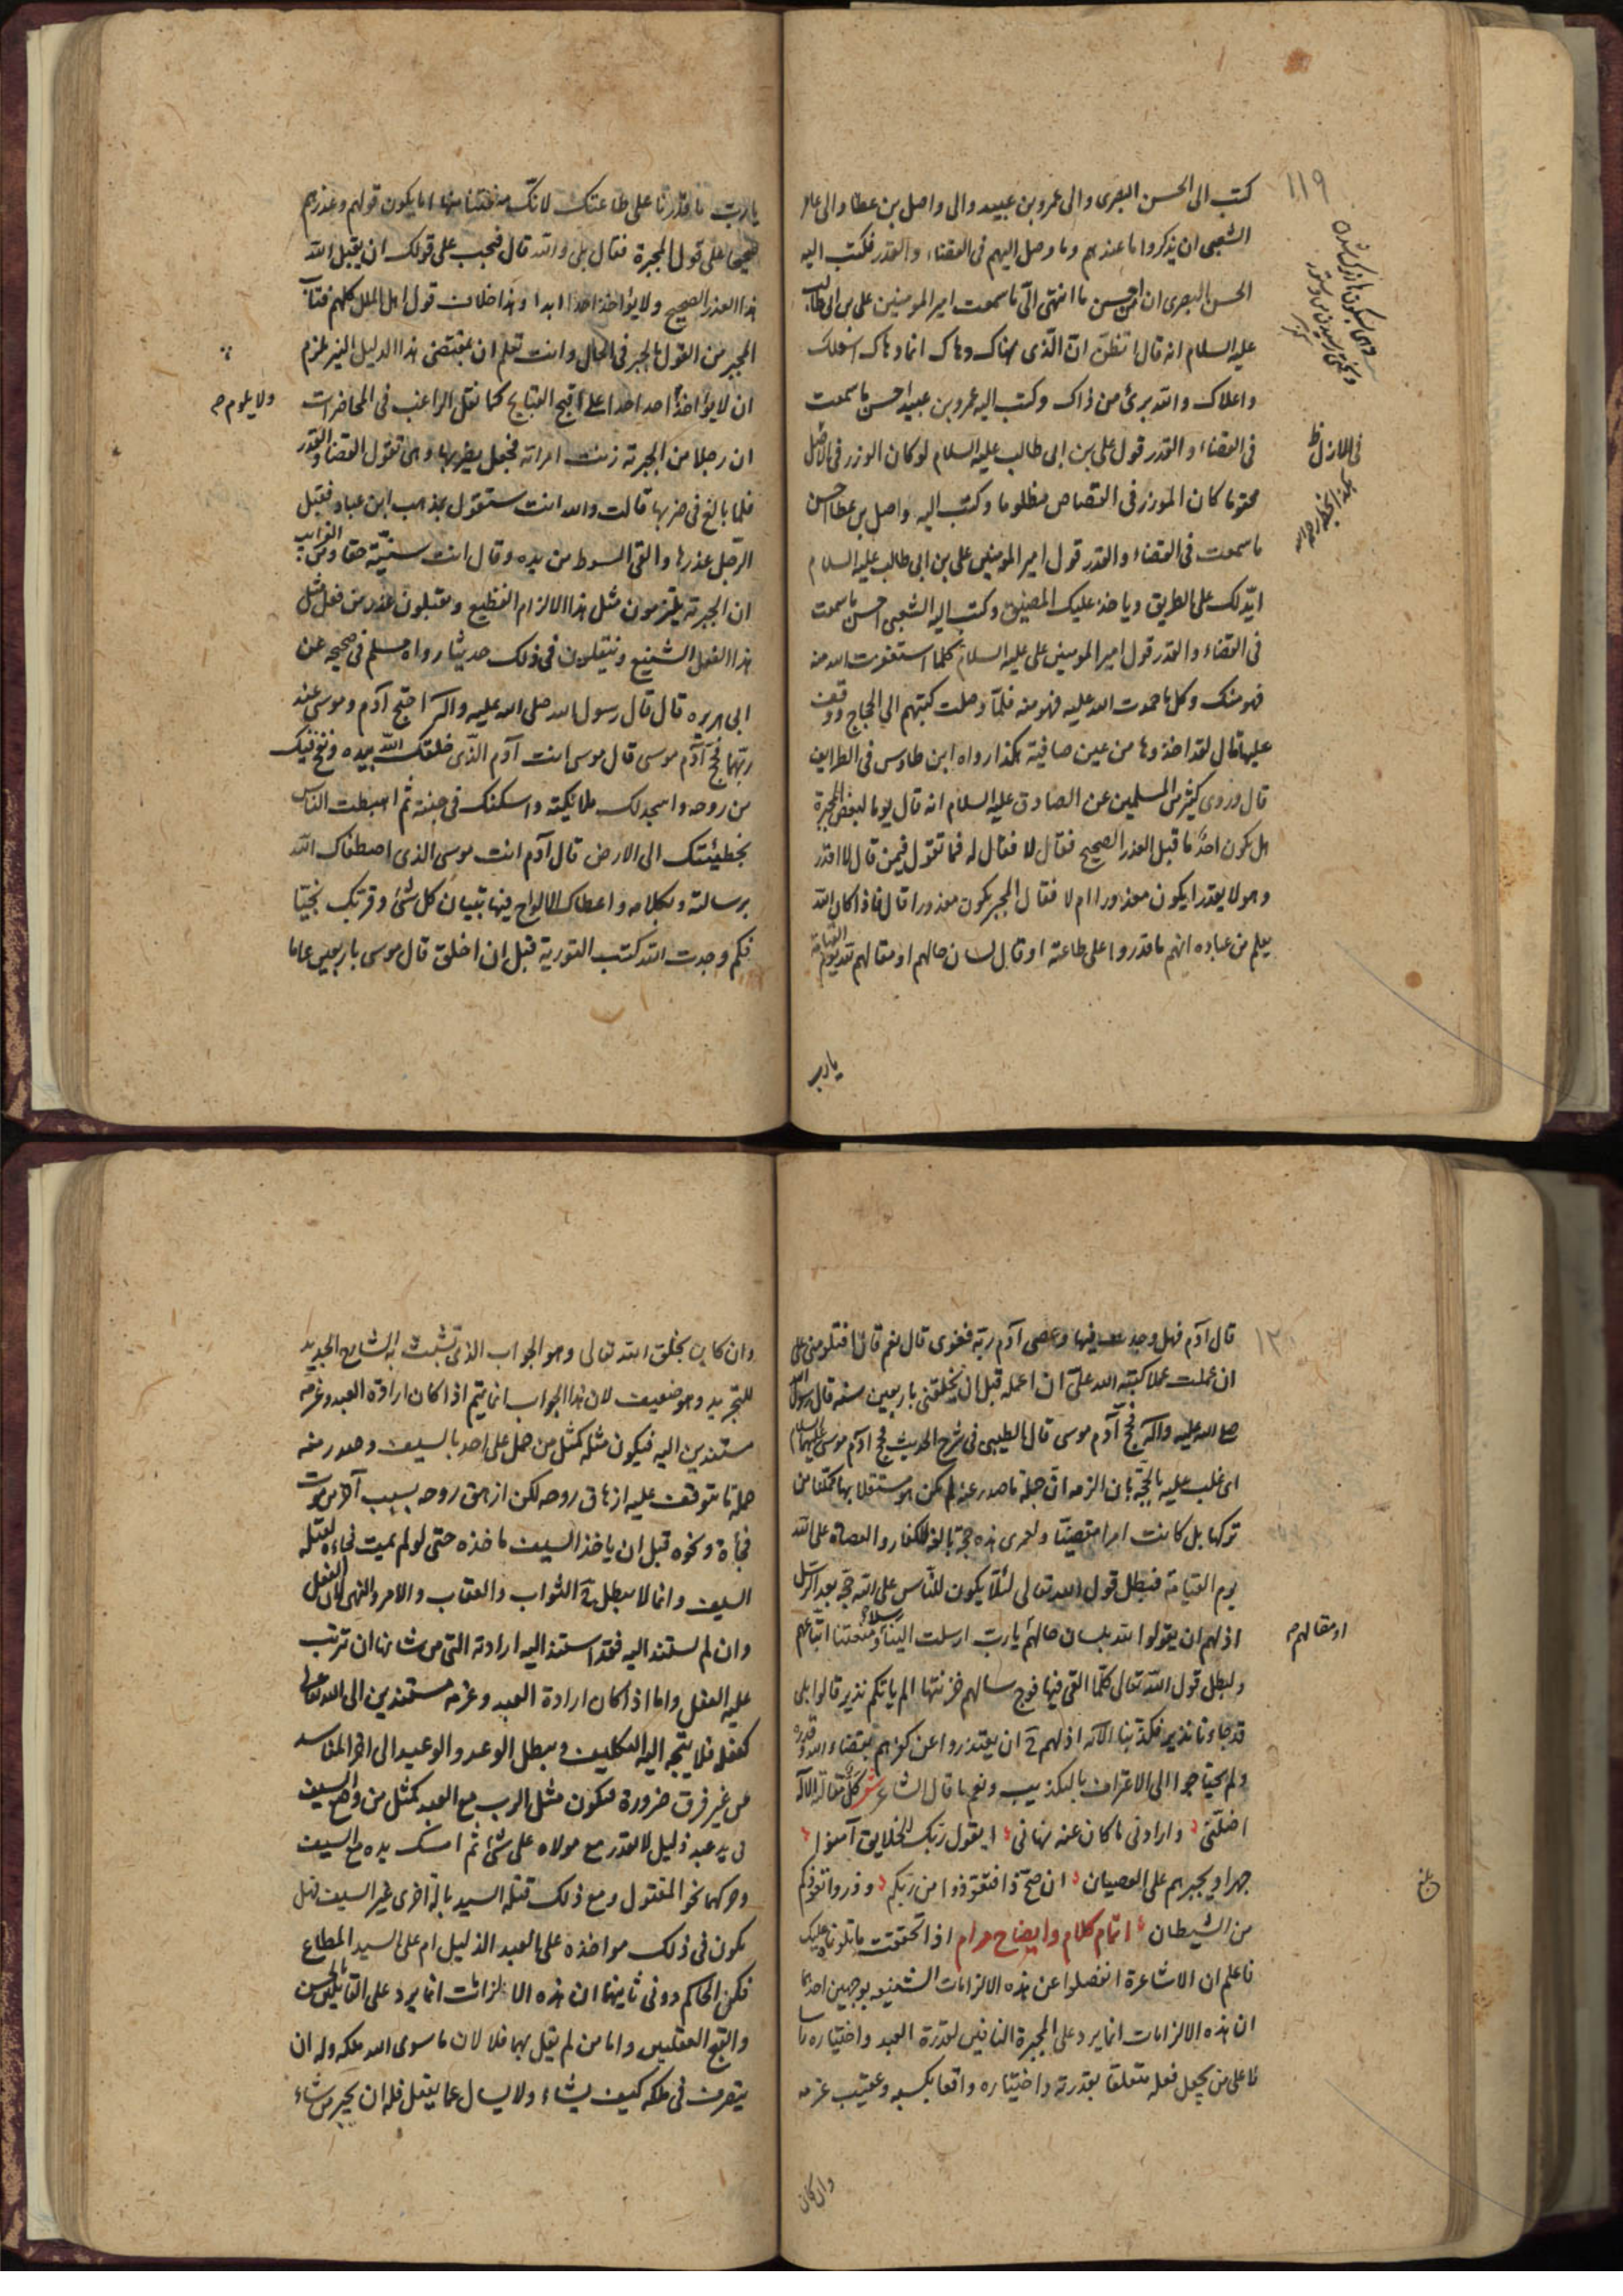 ١١٩
كتب الى الحسن البصرى والى عمرو بن عبيد والى واصل بن عطا والى عامر
الشعبى ان يذكروا ما عندهم وما وصل اليهم فى القضاء والقدر فكتب اليه
الحسن البصرى ان من احسن ما انتهى الىّ ما سمعت امير المومنين على بن ابى طالب
عليه السلام انه قال اتظنّ انّ الّذى نهاك دهاك انما دهاك اسفلك
واعلاك والله برىء من ذاك وكتب اليه عمرو بن عبيد احسن ما سمعت
فى القضاء والقدر قول على بن ابى طالب عليه السلام لو كان الوزر فى الاصل
محتوما كان الموزر فى القصاص مظلوما وكتب اليه واصل بن عطا احسن
ما سمعت فى القضاء والقدر قول امير المومنين على بن ابى طالب عليه السلام
ايدلك على الطريق وياخذ عليك المضيق وكتب اليه الشعبى احسن ما سمعت
فى القضاء والقدر قول امير المومنين على عليه السلام كلما استغفرت الله منه
فهو منك وكل ما حمدت الله عليه فهو منه فلمّا وصلت كتبهم الى الحجاج ووقف
عليها قال لقد اخذوها من عين صافية هكذا رواه ابن طاوس فى الطرايف
قال وروى كثير من المسلمين عن الصادق عليه السلام انه قال يوما لبعض المجبرة
هل يكون احد اقبل للعذر الصحيح فقال لا فقال له فما تقول فيمن قال لا اقدر
وهو لا يقدر ايكون معذورا ام لا فقال المجبر يكون معذورا قال فاذا كان الله
يعلم من عباده انهم ما قدروا على طاعته او قال لسان حالهم او مقالهم لله يوم القيامة
يا رب
فى الازل ظ
يا رب ما قدرنا على طاعتك لانك منعتنا منها اما يكون قولهم وعذرهم
صحيحا على قول المجبرة فقال بلى والله قال فيجب على قولك ان يقبل الله
هذا العذر الصحيح ولا يؤاخذ احدا ابدا وهذا خلاف قول اهل الملل كلهم فتاب
المجبر من القول بالجبر فى الحال وانت تعلم ان بمقتضى هذا الدليل النير يلزم
ان لا يؤاخذ احد احدا على اقبح القبايح كما نقل الراغب فى المحاضرات
ولا يلوم صح
ان رجلا من المجبرة زنت امراته فجعل يضربها وهى تقول القضاء والقدر
فلما بالغ فى ضربها قالت والله انت ستقول بمذهب ابن عباد فقبل
الرجل عذرها والقى السوط من يده وقال انت سنيّة حقا ومن الغرايب
ان المجبرة يلتزمون مثل هذا الالزام الفظيع ويقبلون عذر من فعل مثل
هذا الفعل الشنيع وينقلون فى ذلك حديثا رواه مسلم فى صحيحه عن
ابى هريره قال قال رسول الله صلى الله عليه واله احتج آدم وموسى عند
ربهما فحج آدم موسى قال موسى انت آدم الذى خلقك الله بيده ونفخ فيك
من روحه واسجد لك ملايكته واسكنك فى جنته ثم اهبطت الناس
بخطيئتك الى الارض قال آدم انت موسى الذى اصطفاك الله
برسالته وبكلامه واعطاك الالواح فيها تبيان كل شئ وقربك نجيّا
فبكم وجدت الله كتب التورية قبل ان اخلق قال موسى باربعين عاما
قال آدم فهل وجدت فيها وعصى آدم ربه فغوى قال نعم قال افتلومنى على
ان عملت عملا كتبه الله علىّ ان اعمله قبل ان يخلقنى باربعين سنه قال رسول الله
صلى الله عليه واله فحج آدم موسى قال الطيبى فى شرح الحديث فحج آدم موسى عليهما السلام
اى غلب عليه بالحجّة بان الزمه ان جملة ما صدر عنه لم يكن هو مستقلا بها متمكنا من
تركها بل كانت امرا مقضيّا ولعمرى هذه حجّة بالغة للكفار والعصاة على الله
يوم القيامة فيبطل قول الله تعالى لئلّا يكون للنّاس على الله حجة بعد الرسل
اذ لهم ان يقولوا لله بلسان حالهم يا ربّ ارسلت الينا رسلا ومنعتنا اتباعهم
او مقالهم صح
ويبطل قول الله تعالى كلّما القى فيها فوج سالهم خزنتها الم ياتكم نذير قالوا بلى
قد جاءنا نذير فكذّبنا الآية اذ لهم ح ان يعتذروا عن كفرهم بقضاء الله وقدره
ولم يحتاجوا الى الاعتراف بالتكذيب ونعم ما قال الشاعر شعر كل مقالة الاله
اضلّنى وارادنى ما كان عنه نهانى ايقول ربّك للخلايق آمنوا
جهرا ويجبرهم على العصيان ان صحّ ذا فتعوّذوا من ربّكم وذروا تعوّذكم
من الشيطان اتمام كلام وايضاح مرام اذا تحققت ما تلوناه عليك
فاعلم ان الاشاعرة انفصلوا عن هذه الالزامات الشنيعه بوجهين احدهما
ان هذه الالزامات انما يرد على المجبرة النافين لقدرة العبد واختياره راسا
لا على من يجعل فعله متعلقا بقدرته واختياره واقعا بكسبه وعقيب عزمه
وان كان
وان كان بخلق الله تعالى وهو الجواب الذى تشبث به الشارح الجديد
للتجريد وهو ضعيف لان هذا الجواب انما يتم اذا كان ارادة العبد وعزمه
مستندين اليه فيكون مثله كمثل من حمل على احد بالسيف وصدر منه
جملة ما يتوقف عليه ازهاق روحه لكن ازهق روحه بسبب آخر من موت
فجأة ونحوه قبل ان ياخذ السيف ماخذه حتى لو لم يمت فجاءة لقتله
السيف وانما لا يبطل ح الثواب والعقاب والامر والنهى لان الفعل
وان لم يستند اليه فقد استند اليه ارادته التى من شانها ان ترتب
عليه الفعل واما اذا كان ارادة العبد وعزمه مستندين الى الله تعالى
كفعله فلا يتجه اليه التكليف ويبطل الوعد والوعيد الى اخر المفاسد
من غير فرق ضرورة فيكون مثل الرب مع العبد كمثل من وضع السيف
فى يد عبد ذليل لا يقدر مع مولاه على شئ ثم امسك يده مع السيف
وحركهما نحو المقتول ومع ذلك قتله السيد بآلة اخرى غير السيف فهل
يكون فى ذلك مواخذه على العبد الذليل ام على السيد المطاع
فكن الحاكم دونى ثانيهما ان هذه الالزامات انما يرد على القايلين بالحسن
والقبح العقليين واما من لم يقل بهما فلا لان ما سوى الله ملكه وله ان
يتصرف فى ملكه كيف يشاء ولا يسال عما يفعل فله ان يجبر من شاء